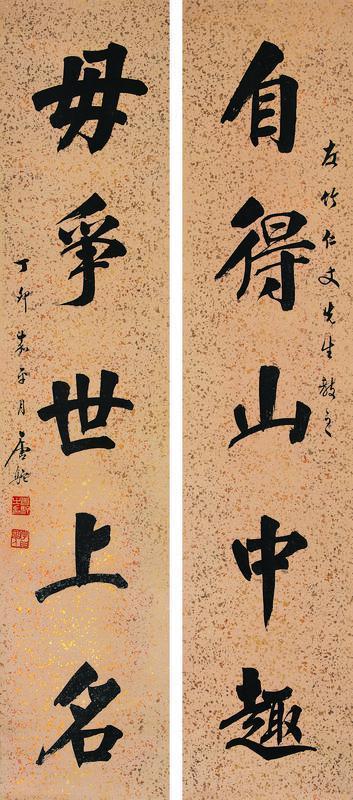 友竹仁丈先生教之
自得山中趣
毋爭世上名
丁卯嘉平月唐駝